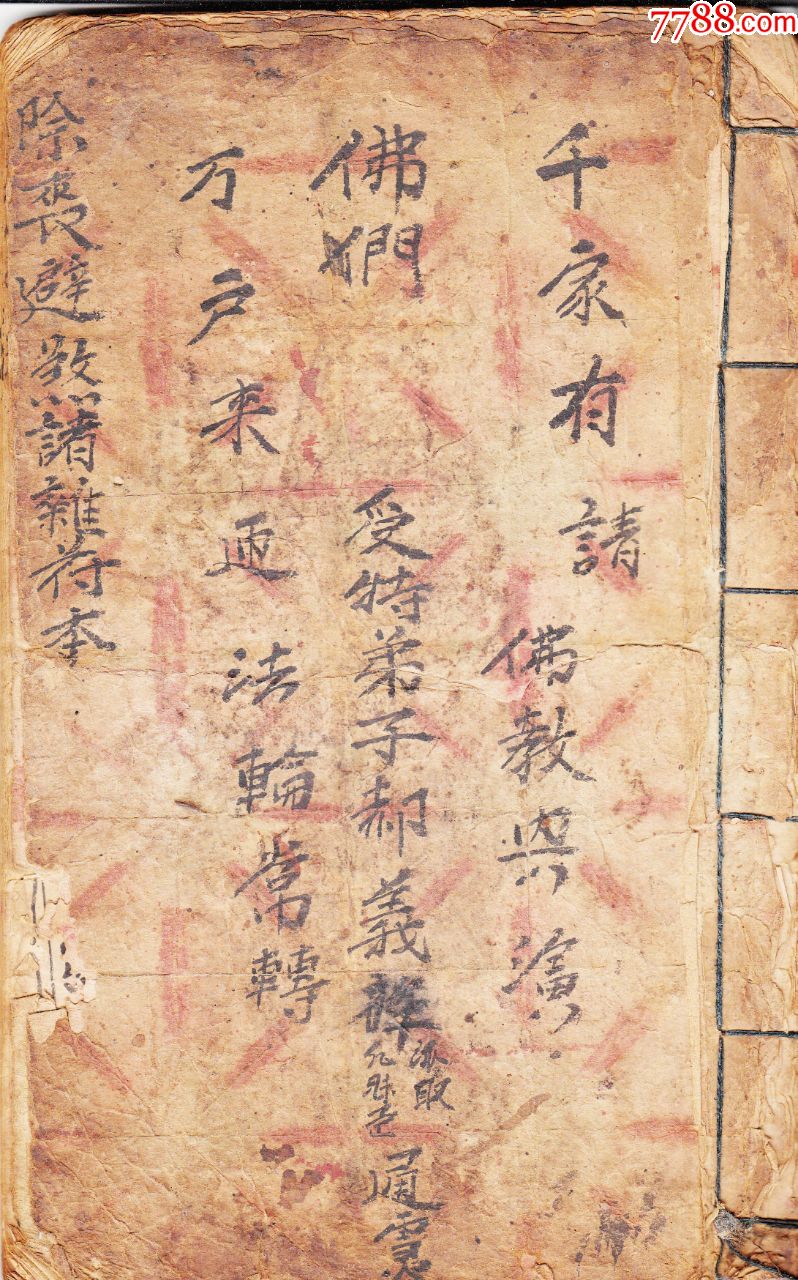 7788.com
千家有請 佛教與
佛們 受特弟子郝義
法取
通靈
万户来迎 法輪常轉
除喪避煞諸雜符本